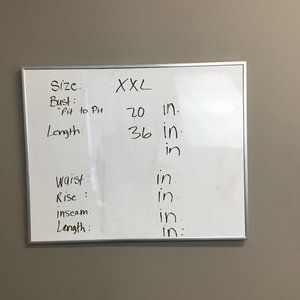 Size: XXL
Bust:
"Pit to Pit 20 in.
Length: 36 in.
in
Waist: in.
Rise: in.
inseam: in.
Length: in.